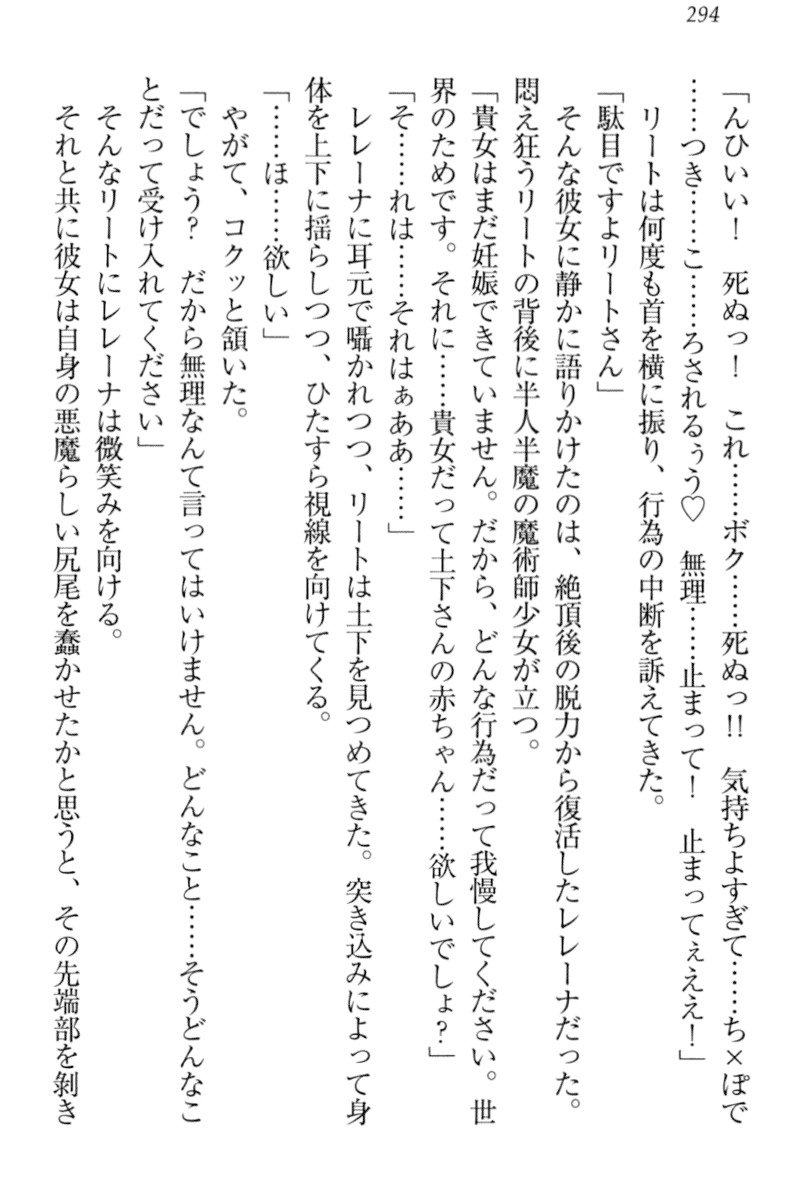 294
「んひいい！　死ぬっ！　これ……ボク……死ぬっ!!　気持ちよすぎて……ち×ぽで
……つき……こ……ろされるぅう♡　無理……止まって！　止まってぇええ！」
リートは何度も首を横に振り、行為の中断を訴えてきた。
「駄目ですよリートさん」
そんな彼女に静かに語りかけたのは、絶頂後の脱力から復活したレレーナだった。
悶え狂うリートの背後に半人半魔の魔術師少女が立つ。
「貴女はまだ妊娠できていません。だから、どんな行為だって我慢してください。世
界のためです。それに……貴女だって土下さんの赤ちゃん……欲しいでしょ？」
「そ……れは……それはぁああ……」
レレーナに耳元で囁かれつつ、リートは土下を見つめてきた。突き込みによって身
体を上下に揺らしつつ、ひたすら視線を向けてくる。
「……ほ……欲しい」
やがて、コクッと頷いた。
「でしょう？　だから無理なんて言ってはいけません。どんなこと……そうどんなこ
とだって受け入れてください」
そんなリートにレレーナは微笑みを向ける。
それと共に彼女は自身の悪魔らしい尻尾を蠢かせたかと思うと、その先端部を剝き